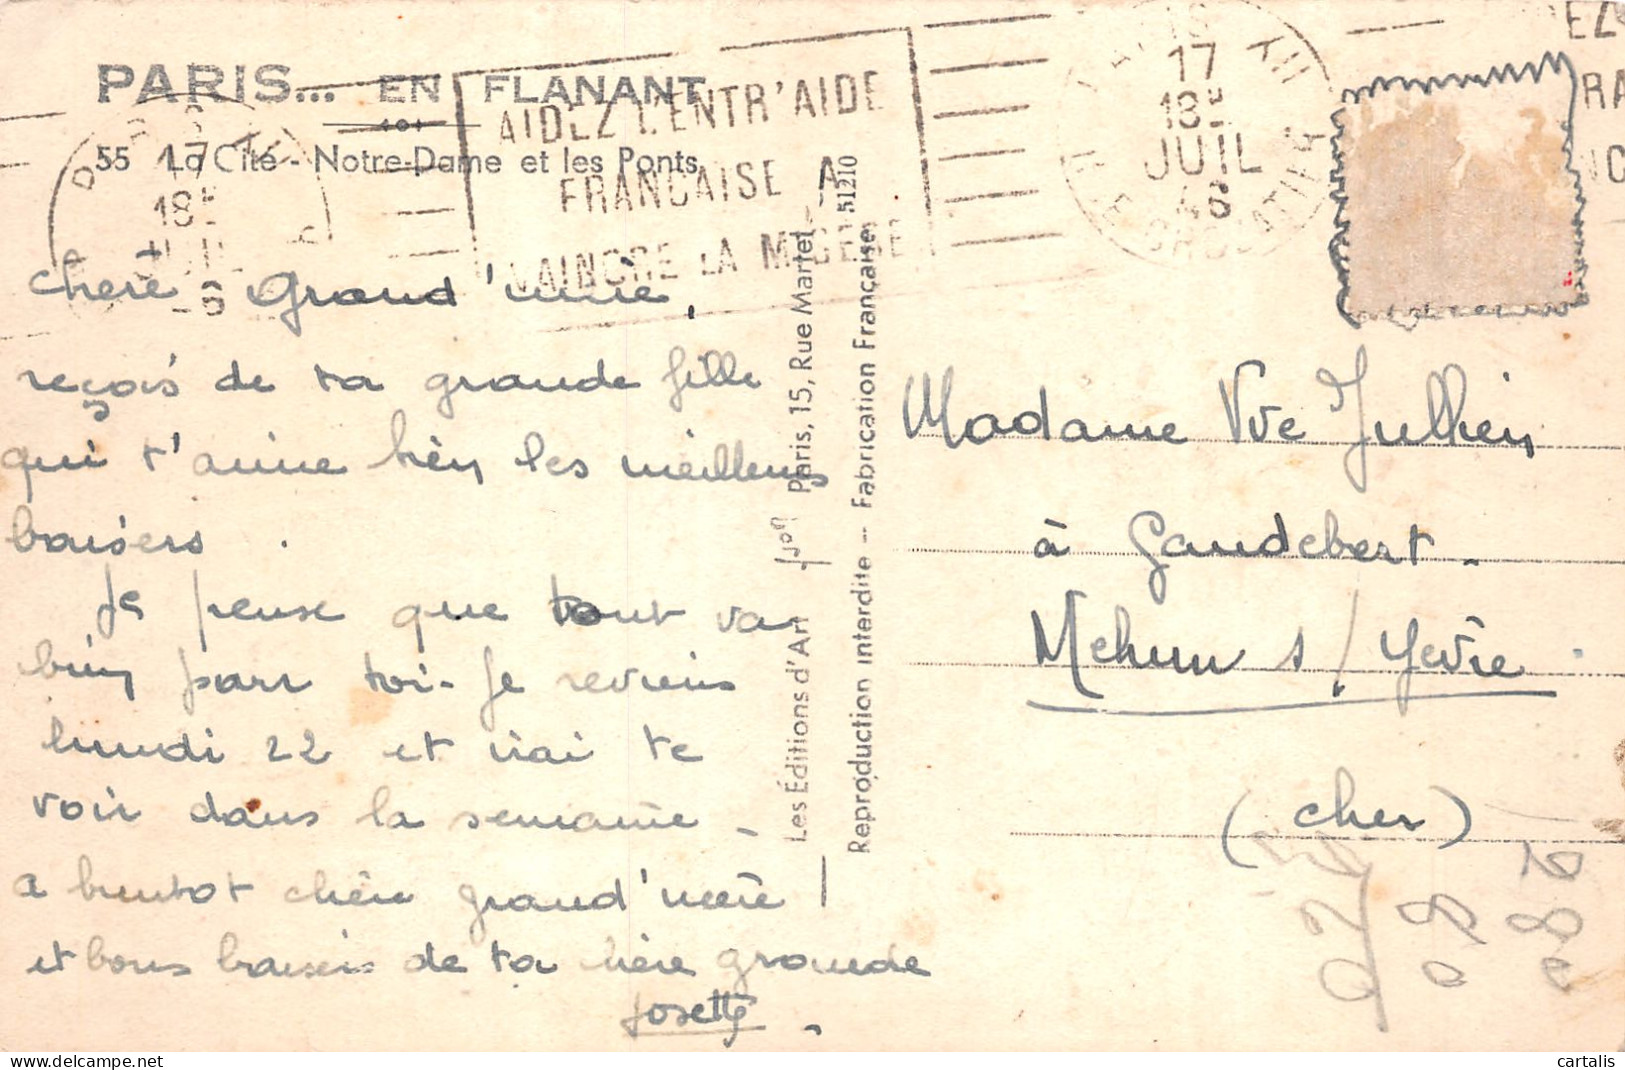 PARIS... EN FLANANT
55 La Cité - Notre-Dame et les Ponts
AIDEZ L'ENTR'AIDE
FRANÇAISE A
VAINCRE LA MISERE
17
18H
JUIL
46
chère Grand'mère,
reçois de ta grande fille
qui t'aime bien les meilleurs
baisers.
Je pense que tout va
bien pour toi. Je reviens
lundi 22 et irai te
voir dans la semaine -
a bientot chère grand'mère
et bons baisers de ta grande
Josette.
Les Éditions d'Art Yvon Paris, 15, Rue Martel
Reproduction interdite -- Fabrication Française 51210
Madame Vve Jullien
à Gaudebert.
Mehun s/ Yèvre
(Cher)
cartalis